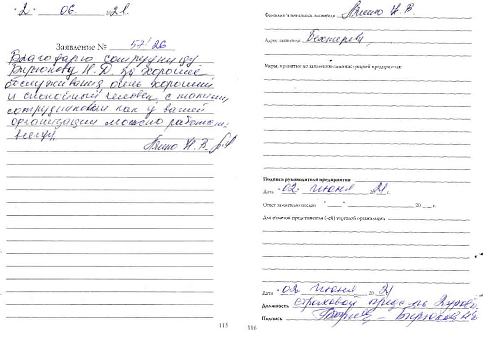 "2" 06 21
Заявление № 57/26
Благодарю сотрудницу
Бирюкову Н.Д. за хорошее
обслуживание очень хороший
и человек, с такими
сотрудниками как у вашей
организации можно работать
Фамилия и инициалы заявителя Н.В.
Адрес заявителя
Меры, принятые по заявлению администрацией предприятия
Подпись руководителя предприятия
Дата "02" июня 2021.
Ответ заявителю послан " " 20 г.
Для отметок представителя (-ей) торговой организации
Дата "02" июня 2021
Должность страховой
Подпись Бирюкова Н.
115
116